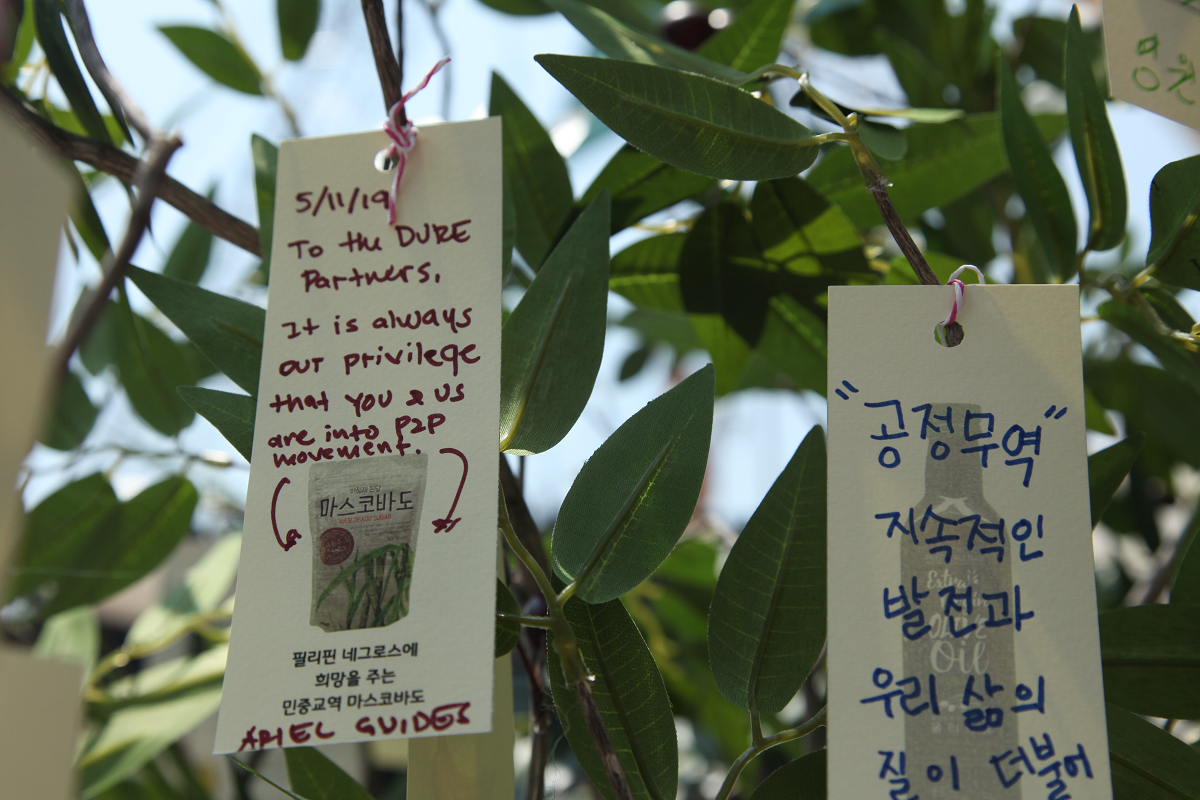 5/11/19
To the DURE
Partners,
It is always
our privilege
that you & us
are into P2P
movement.
마스코바도
MASCOBADO SUGAR
필리핀 네그로스에
희망을 주는
민중교역 마스코바도
ARIEL GUIDES
"공정무역"
지속적인
발전과
우리 삶의
질이 더불어
Extra
Olive
Oil